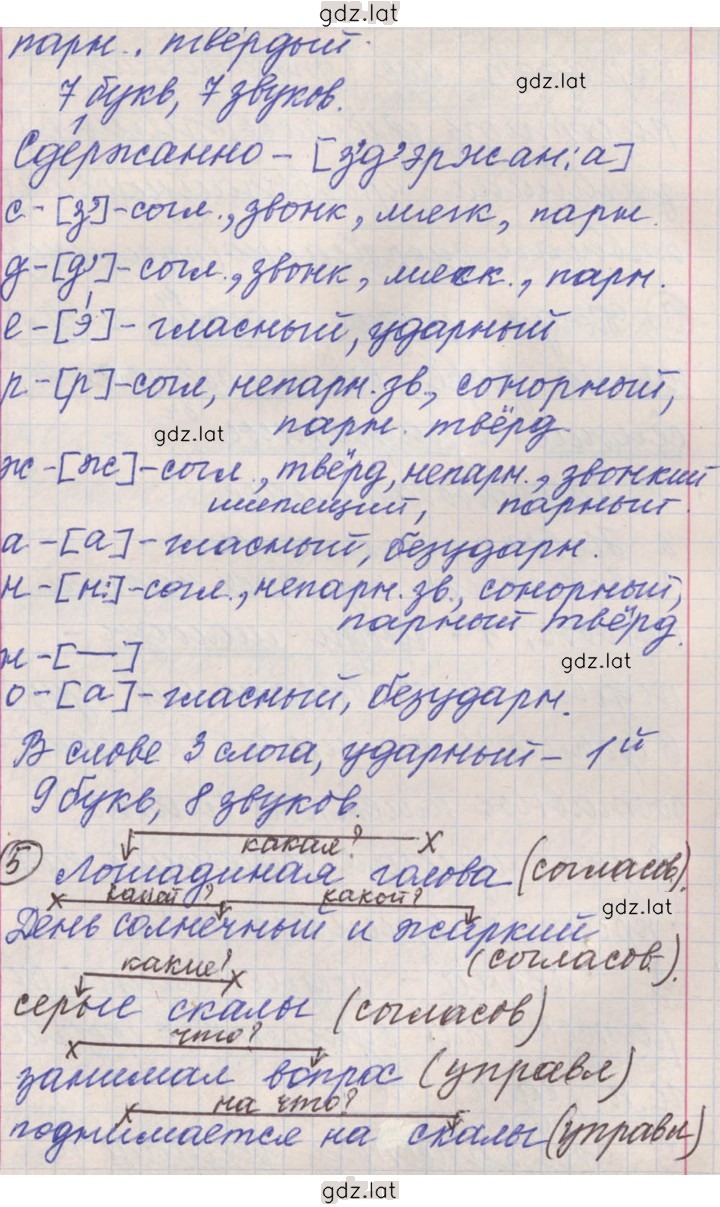 gdz.lat
парн., твёрдый.
7 букв, 7 звуков.
gdz.lat
Сде́ржанно – [з'д'эржан:а]
с – [з'] – согл., звонк, мягк, парн.
д – [д'] – согл., звонк, мягк., парн.
е – [э́] – гласный, ударный
р – [р] – согл, непарн. зв., сонорный,
gdz.lat
парн. твёрд
ж – [ж] – согл., твёрд, непарн., звонкий
шипящий, парный.
а – [а] – гласный, безударн.
н – [н:] – согл., непарн. зв., сонорный,
парный твёрд.
н – [—]
gdz.lat
о – [а] – гласный, безударн.
В слове 3 слога, ударный – 1й
9 букв, 8 звуков.
какая? х
5 Лошадиная голова (согласов).
х какой? какой?
gdz.lat
День солнечный и жаркий
(согласов.).
какие? х
серые скалы (согласов)
х что?
занимал вопрос (управл)
х на что?
поднимается на скалы (управл)
gdz.lat